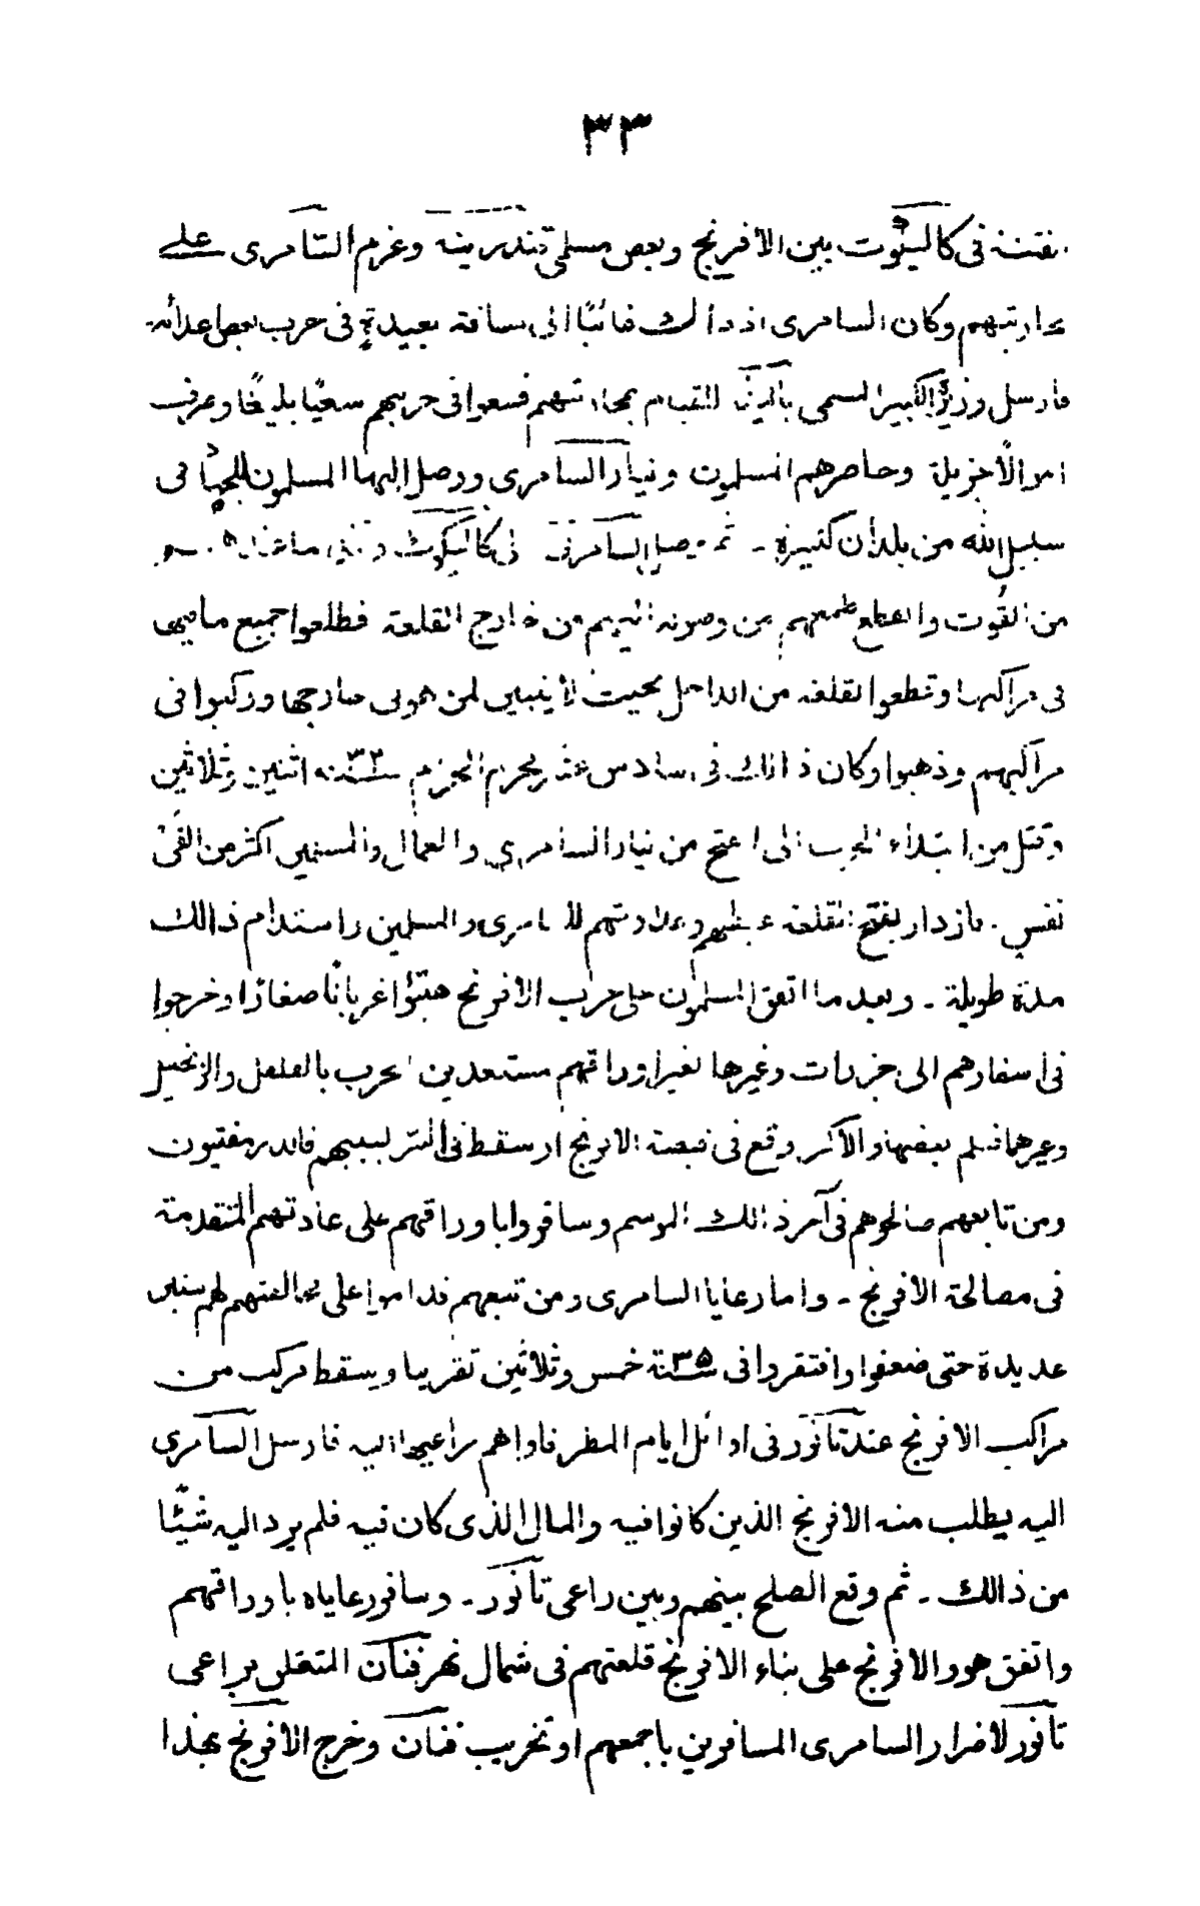 ٣٣
فى كاليكوت بين الافرنج وبعض مسلمى فندرينه وعزم السامرى على
محاربتهم وكان السامرى اذ ذالك غائبًا الى مسافة بعيدةٍ فى حرب بعض اعدائه
فارسل وزيره الكبير المسمى للقيام بمحاربتهم فسعوا فى حربهم سعيًا بليغًا وصرف
اموالًا جزيلة وحاصرهم المسلمون ونيار السامرى ووصل اليها المسلمون للجهاد فى
سبيل الله من بلدان كثيرة ـ ثم وصل السامرى الى كاليكوت
من القوت وانقطع طمعهم من وصوله اليهم من خارج القلعة فطلعوا جميع ما فيها
فى مراكبها وقطعوا القلعة من الداخل بحيث لا يتبين لمن هو فى خارجها وركبوا فى
مراكبهم وذهبوا وكان ذالك فى سادس عشر محرم سنة ٣٢ اثنين وثلاثين
وقتل من ابتداء الحرب الى الفتح من نيار السامرى والعمال والمسلمين اكثر من الفى
نفس . فازداد بفتح القلعة غيظهم وعداوتهم للسامرى والمسلمين واستدام ذالك
مدة طويلة ـ وبعد ما اتفق المسلمون على حرب الافرنج هيّئوا غربانًا صغارًا وخرجوا
فى اسفارهم الى جزرات وغيرها لغير اوراقهم مستعدين للحرب بالفلفل والزنجبيل
وغيرهما فسلم بعضها والاكثر وقع فى قبضة الافرنج او سقط فى البر لسببهم فاندرمفتيون
ومن تابعهم صالحوهم فى آخر ذالك الموسم وسافروا باوراقهم على عادتهم المتقدمة
فى مصالحة الافرنج ـ واما رعايا السامرى ومن تبعهم فداموا على مخالفتهم لهم سنين
عديدة حتى ضعفوا وافتقروا فى سنة ٣٥ خمس وثلاثين تقريبا وسقط مركب من
مراكب الافرنج عند تانور فى اوائل ايام المطر فاواهم راعيها اليه فارسل السامرى
اليه يطلب منه الافرنج الذين كانوا فيه والمال الذى كان فيه فلم يرد اليه شيئًا
من ذالك ـ ثم وقع الصلح بينهم وبين راعى تانور ـ وسافر رعاياه باوراقهم
واتفق هو والافرنج على بناء الافرنج قلعتهم فى شمال نهر فنان المتعلق براعى
تانور لاضرار السامرى المسافرين باجمعهم او تخريب فنان وخرج الافرنج بهذا